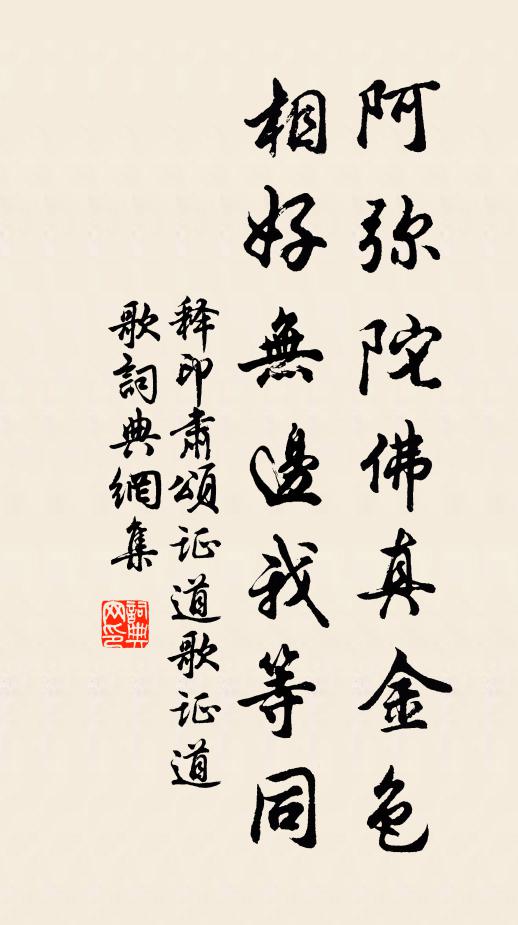 阿弥陀佛真金色
相好無邊我等同
释印肃頌证道歌证道
歌詞典網集
詞典网印